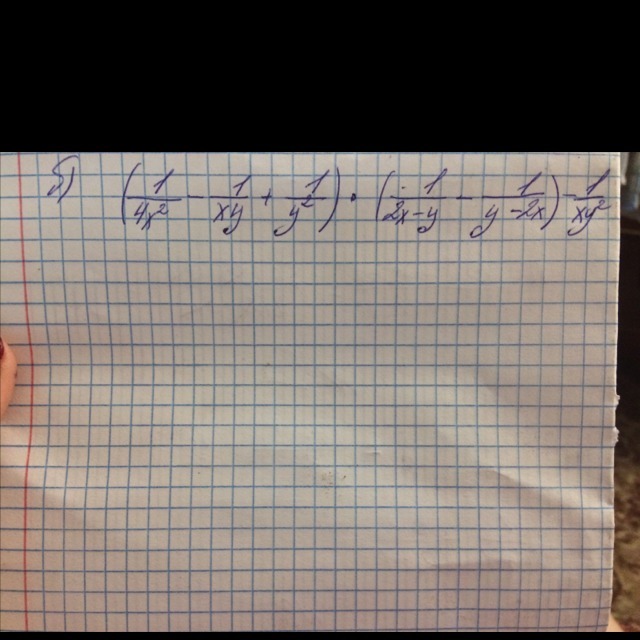 б) (1/4x² - 1/xy + 1/y²) · (1/2x-y - 1/y-2x) - 1/xy²